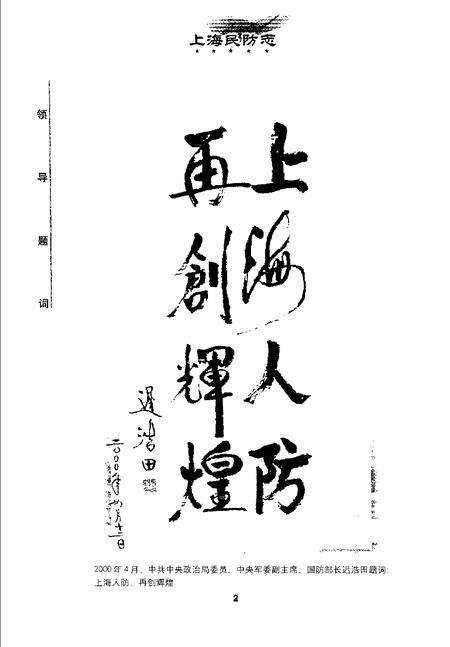 上海民防志
领导题词
上海人防
再創輝煌
遲浩田
二〇〇〇年四月十二日
2000年4月，中共中央政治局委员、中央军委副主席、国防部长迟浩田题词:
上海人防，再创辉煌
2